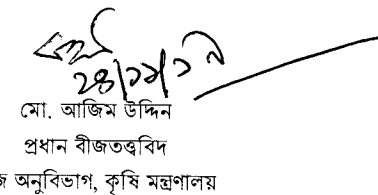 মো. আজিম উদ্দিন
প্রধান বীজতত্ত্ববিদ
অনুবিভাগ, কৃষি মন্ত্রণালয়